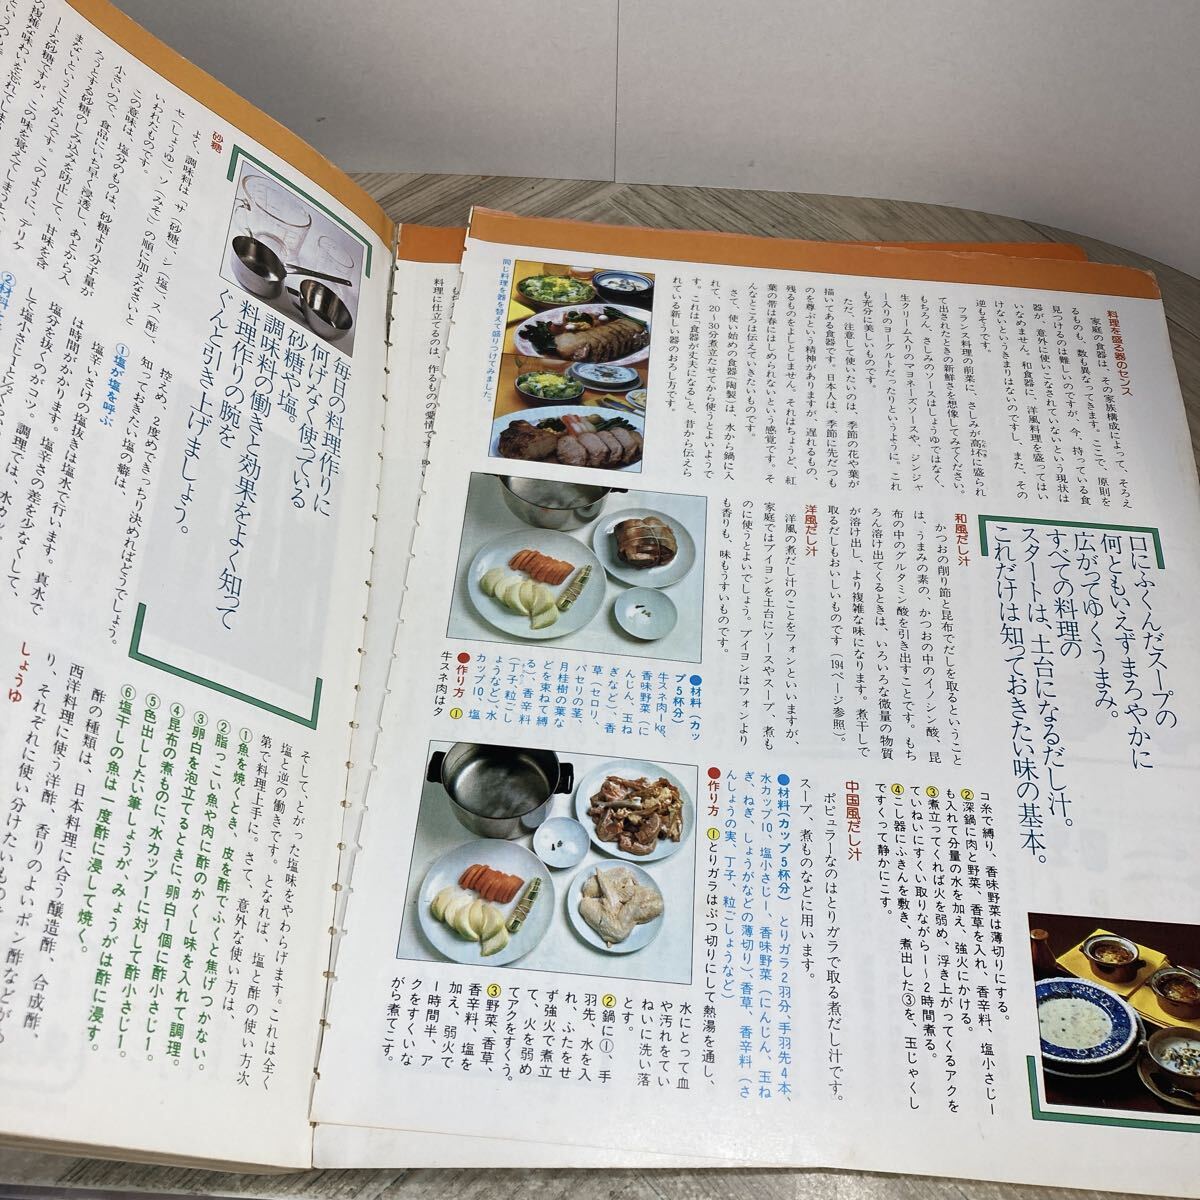 口にふくんだスープの
何ともいえずまろやかに
広がってゆくうまみ。
すべての料理の
スタートは、土台になるだし汁。
これだけは知っておきたい味の基本。
料理を盛る器のセンス
家庭の食器は、その家族構成によって、そろえ
るものも、数も異なってきます。ここで、原則を
見つけるのは難しいのですが、今、持っている食
器が、意外に使いこなされていないという現状は
いなめません。和食器に、洋風料理を盛ってはい
けないというきまりはないのですし、また、その
逆もそうです。
フランス料理の前菜に、さしみが高坏に盛られ
て出されたときの新鮮さを想像してみてください。
もちろん、さしみのソースはしょうゆではなく、
生クリーム入りのマヨネーズソースや、ジンジャ
ー入りのヨーグルトだったりというように。これ
も充分に美しいものです。
ただ、注意して使いたいのは、季節の花や葉が
描いてある食器です。日本人は、季節に先だつも
のを尊ぶという精神がありますが、遅れるもの、
残るものをよしとしません。それはちょうど、紅
葉の帯は春にはしめられないという感覚です。そ
んなところは伝えていきたいものです。
さて、使い始めの食器(陶製)は、水から鍋に入
れて、20〜30分煮立たせてから使うとよいようで
す。これは、「食器が丈夫になる」と、昔から伝えら
れている新しい器のおろし方です。
同じ料理を器を替えて盛りつけてみました。
和風だし汁
かつおの削り節と昆布でだしを取るということ
は、うまみの素の、かつおの中のイノシン酸、昆
布の中のグルタミン酸を引き出すことです。もち
ろん溶け出てくるときは、いろいろな微量の物質
が溶け出し、より複雑な味になります。煮干しで
取るだしもおいしいものです(194ページ参照)。
洋風だし汁
洋風の煮だし汁のことをフォンといいますが、
家庭ではブイヨンを土台にソースやスープ、煮も
のに使うとよいでしょう。ブイヨンはフォンより
も香りも、味もうすいものです。
●材料(カッ
プ5杯分)
牛スネ肉1kg、
香味野菜(に
んじん、玉ね
ぎなど)、香
草(セロリ、
パセリの茎、
月桂樹の葉な
どを束ねて縛
る)、香辛料
(丁子、粒こし
ょうなど)、水
カップ10、塩
●作り方 ①
牛スネ肉はタ
コ糸で縛り、香味野菜は薄切りにする。
②深鍋に肉と野菜、香草を入れ、香辛料、塩小さじ1
も入れて分量の水を加え、強火にかける。
③煮立ってくれば火を弱め、浮き上がってくるアクを
ていねいにすくい取りながら1〜2時間煮る。
④こし器にふきんを敷き、煮出した③を、玉じゃくし
ですくって静かにこす。
中国風だし汁
ポピュラーなのはとりガラで取る煮だし汁です。
スープ、煮ものなどに用います。
●材料(カップ5杯分) とりガラ2羽分、手羽先4本、
水カップ10、塩小さじ1、香味野菜(にんじん、玉ね
ぎ、ねぎ、しょうがなどの薄切り)、香草、香辛料(さ
んしょうの実、丁子、粒ごしょうなど)
●作り方 ①とりガラはぶつ切りにして熱湯を通し、
水にとって血
や汚れをてい
ねいに洗い落
とす。
②鍋に①、手
羽先、水を入
れ、ふたをせ
ず強火で煮立
て、火を弱め
てアクをすくう。
③野菜、香草、
香辛料、塩を
加え、弱火で
1時間半、ア
クをすくいな
がら煮てこす。
料理に仕立てるのは、作るものの愛情です。
毎日の料理作りに
何げなく使っている
砂糖や塩。
調味料の働きと効果をよく知って
料理作りの腕を
ぐんと引き上げましょう。
砂糖
よく、調味料は「サ(砂糖)、シ(塩)、ス(酢)
セ(しょうゆ)、ソ(みそ)の順に加えなさいと
いわれたものです。
この意味は、塩分のものは、砂糖より分子量が
小さいので、食品にいち早く浸透し、あとから入
ろうとする砂糖のしみ込みを防止して、甘味を含
まないということからです。このように、デリケ
ートな砂糖ですが、この味を覚えてしまうと、
の複雑な味わいを忘れてしま
控えめ、2度めできっちり決めればどうでしょう。
知っておきたい塩の癖は、
①塩が塩を呼ぶ
塩辛いさけの塩抜きは塩水で行います。真水で
は時間がかかります。塩辛さの差を少なくして、
塩分を抜くのがコツ。調理では、水カッ
そして、とがった塩味をやわらげます。これは全く
塩と逆の働きです。となれば、塩と酢の使い方次
第で料理上手に。さて、意外な使い方は、
①魚を焼くとき、皮を酢でふくと焦げつかない。
②脂っこい魚や肉に酢のかくし味を入れて調理。
③卵白を泡立てるときに、卵白1個に酢小さじ1。
④昆布の煮ものに、水カップ1に対して酢小さじ1。
⑤色出ししたい筆しょうが、みょうがは酢に浸す。
⑥塩干しの魚は一度酢に浸して焼く。
酢の種類は、日本料理に合う醸造酢、合成酢、
西洋料理に使う洋酢、香りのよいポン酢などが
り、それぞれに使い分けたいもの
しょうゆ